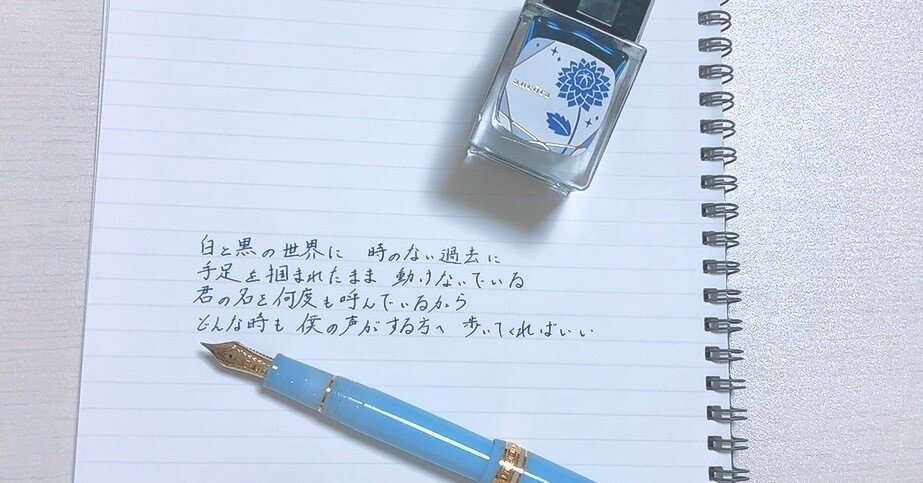 白と黒の世界に 時のない過去に
手足を掴まれたまま 動けないでいる
君の名を何度も呼んでいるから
どんな時も 僕の声がする方へ 歩いてくればいい